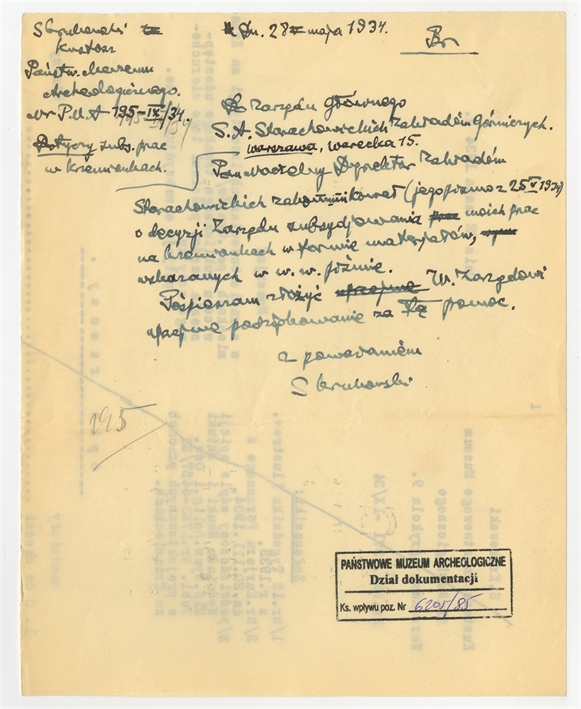 S Krukowski
Kustosz
Państw. Muzeum
Archeologicznego.
Nr P.M.A 195-IX/34.
Dotyczy subw. prac
w Krzemionkach.
Dn. 28 maja 1934.
Do Zarządu Głównego
S.A. Starachowickich Zakładów Górniczych.
Warszawa, Warecka 15.
Pan Naczelny Dyrektor Zakładów
Starachowickich zakomunikował (jego pismo z 25 V 1934)
o decyzji Zarządu subsydjowania moich prac
na Krzemionkach w formie materjałów,
wskazanych w w. w. piśmie.
Pośpieszam złożyć uprzejme W. Zarządowi
uprzejme podziękowanie za Tą pomoc.
z poważaniem
S Krukowski
195
PAŃSTWOWE MUZEUM ARCHEOLOGICZNE
Dział dokumentacji
Ks. wpływu poz. Nr 6205/85